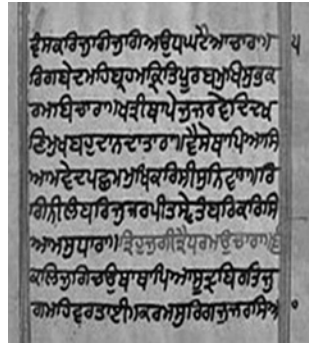 ਵੰਸਕਰਿਚਾਰਿਜੁਗਿਅਉਧਘਟੈਆਚਾਰਾ॥ ੫
ਰਿਗਬੇਦਮਹਿਬ੍ਰਹਮਕ੍ਰਿਤਿਪੂਰਬਮੁਖਿਸੁਭਕ
ਰਮਬਿਚਾਰਾ॥ਖਤ੍ਰੀਥਾਪੇਜੁਜਰਵੇਦਿਦਖ
ਣਿਮੁਖਬਹੁਦਾਨਦਾਤਾਰਾ॥ਵੈਸੋਥਾਪਿਆਸਿ
ਆਮਵੇਦਪਛਮਮੁਖਿਕਰਿਸੀਸੁਨਿਵਾਰਾ॥ਰਿ
ਗਿਨੀਲੰਬਰਿਜੁਜਰਪੀਤਸ੍ਵੇਤੰਬਰਿਕਰਿਸਿ
ਆਮਸੁਧਾਰਾ॥ਤ੍ਰਿਹੁਜੁਗੀਤ੍ਰੈਧਰਮਉਚਾਰਾ॥੬
ਕਲਿਜੁਗਿਚਉਥਾਥਾਪਿਆਸੂਦ੍ਰਬਿਰਤਿਜ
ਗਮਹਿਵਰਤਾਈ॥ਕਰਮਸੁਰਿਗਿਜੁਜਰਸਿਅ